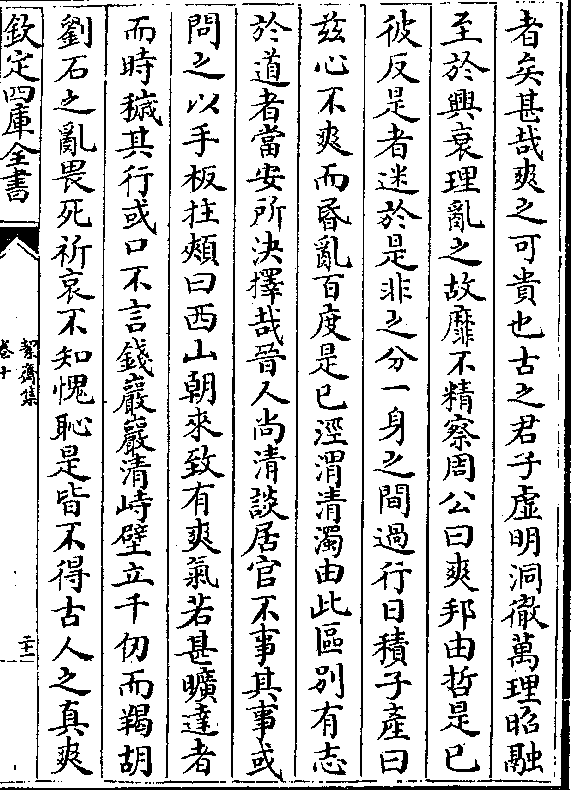 者矣甚哉爽之可貴也古之君子虛明洞徹萬理昭融
至於興衰理亂之故靡不精察周公曰爽邦由哲是已
彼反是者迷於是非之分一身之間過行日積子產曰
茲心不爽而昏亂百度是已涇渭清濁由此區別有志
於道者當安所決擇哉晉人尚清談居官不事其事或
問之以手板拄頰曰西山朝來致有爽氣若甚曠達者
而時穢其行或口不言錢巖巖清峙壁立千仞而羯胡
劉石之亂畏死祈哀不知愧恥是皆不得古人之真爽
欽定四庫全書
絜齋集
卷十
二十一